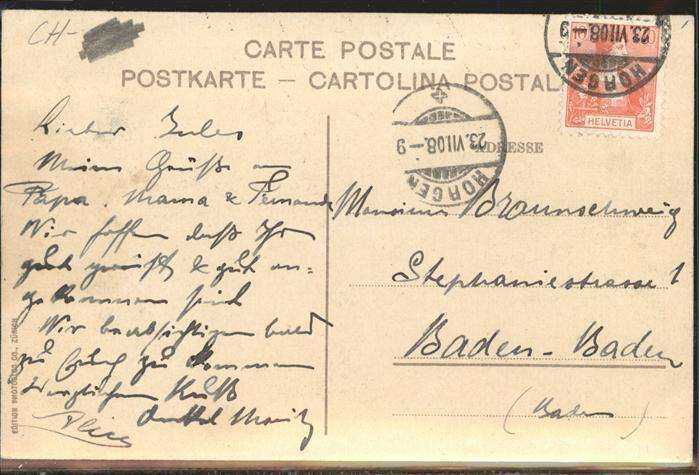 CH-
CARTE POSTALE
POSTKARTE – CARTOLINA POSTALE
10
HELVETIA
HORGEN
23.VII.08.–9
HORGEN
23.VII.08.–9
ADRESSE
Lieber Jules
Meine Grüße an
Papa, Mama & Fernande
Wir hoffen daß Ihr
gut gereist & gut an-
gekommen seid
Wir beabsichtigen bald
zu Euch zu kommen
Herzlichen Kuß
Onkel Moritz
Monsieur Braunschweig
Stephaniestrasse 1
Baden-Baden
(Baden)
EDITION PHOTOGLOB CO., ZÜRICH